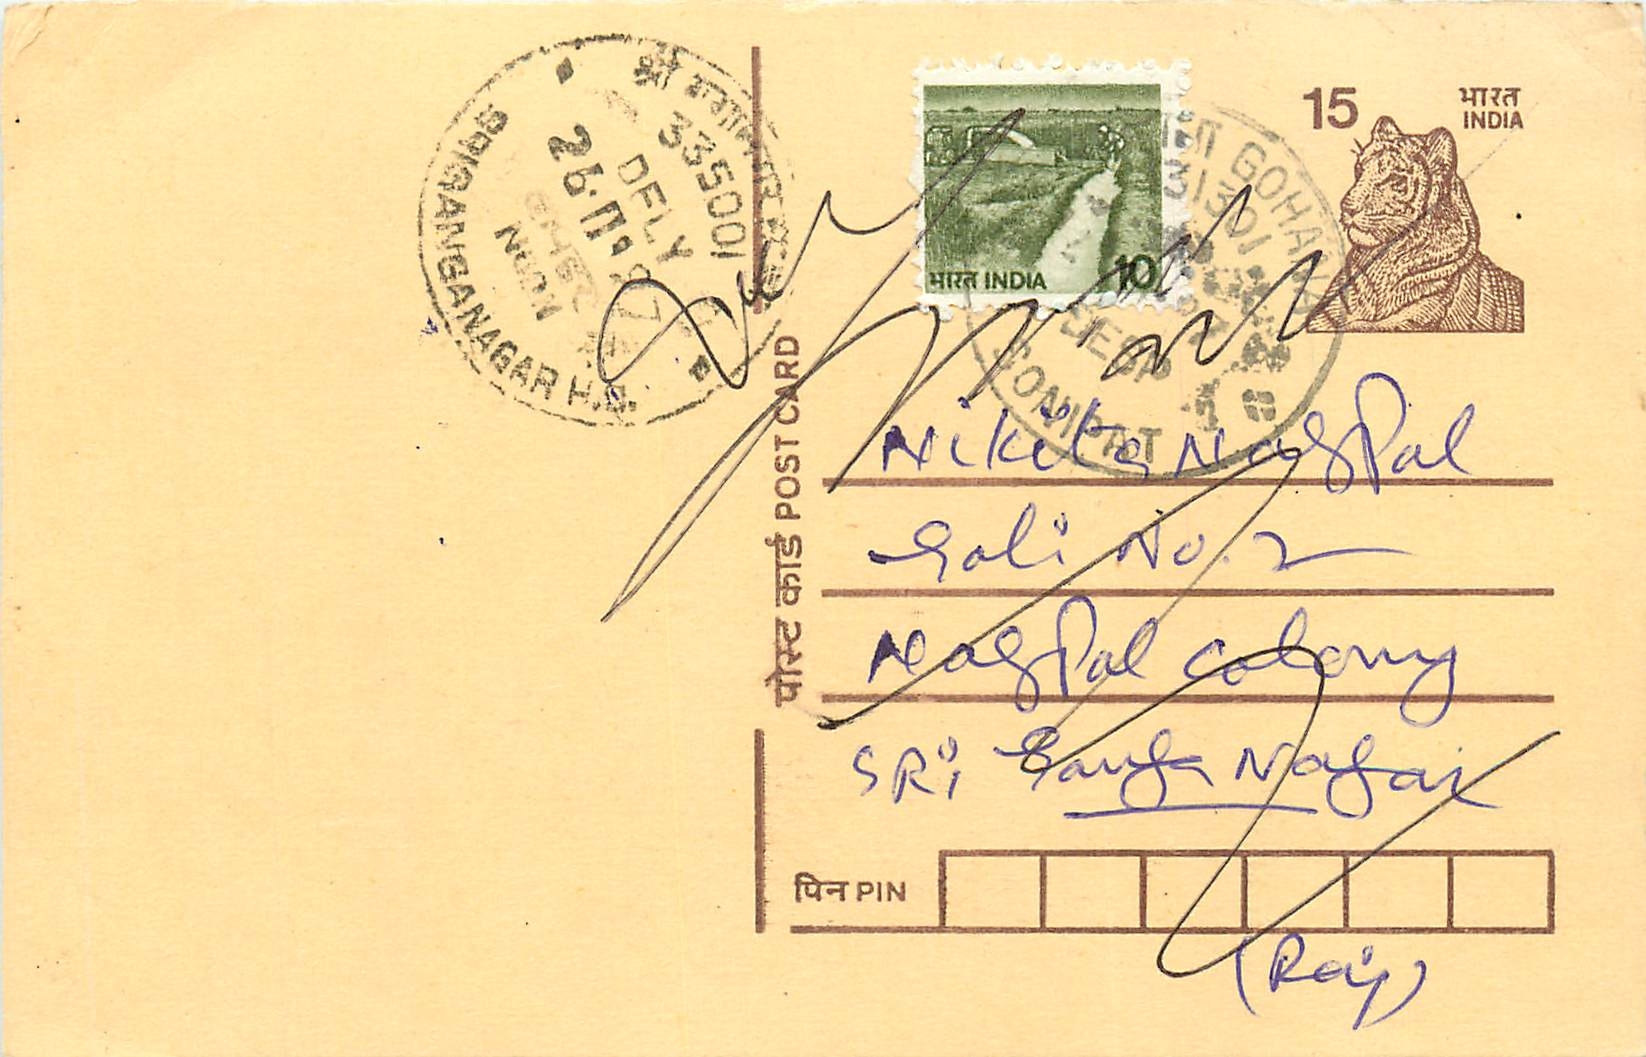 श्री
335001
DELY
26
NOON
SRIGANGANAGAR H.O.
भारत INDIA 10
GOHANA
1301
SONIPAT
15
भारत
INDIA
पोस्ट कार्ड POST CARD
Nikita Nagpal
Gali No. 2
Nagpal colony
SRi Ganga Nagar
पिन PIN
(Raj)